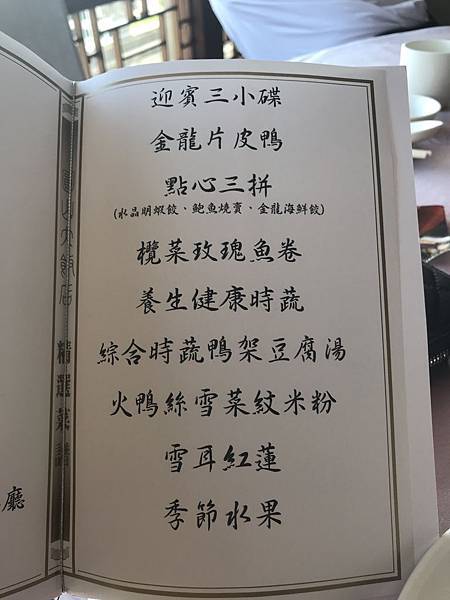 迎賓三小碟
金龍片皮鴨
點心三拼
(水晶明蝦餃、鮑魚燒賣、金龍海鮮餃)
欖菜玫瑰魚卷
養生健康時蔬
綜合時蔬鴨架豆腐湯
火鴨絲雪菜紋米粉
雪耳紅蓮
季節水果
精選菜譜
廳